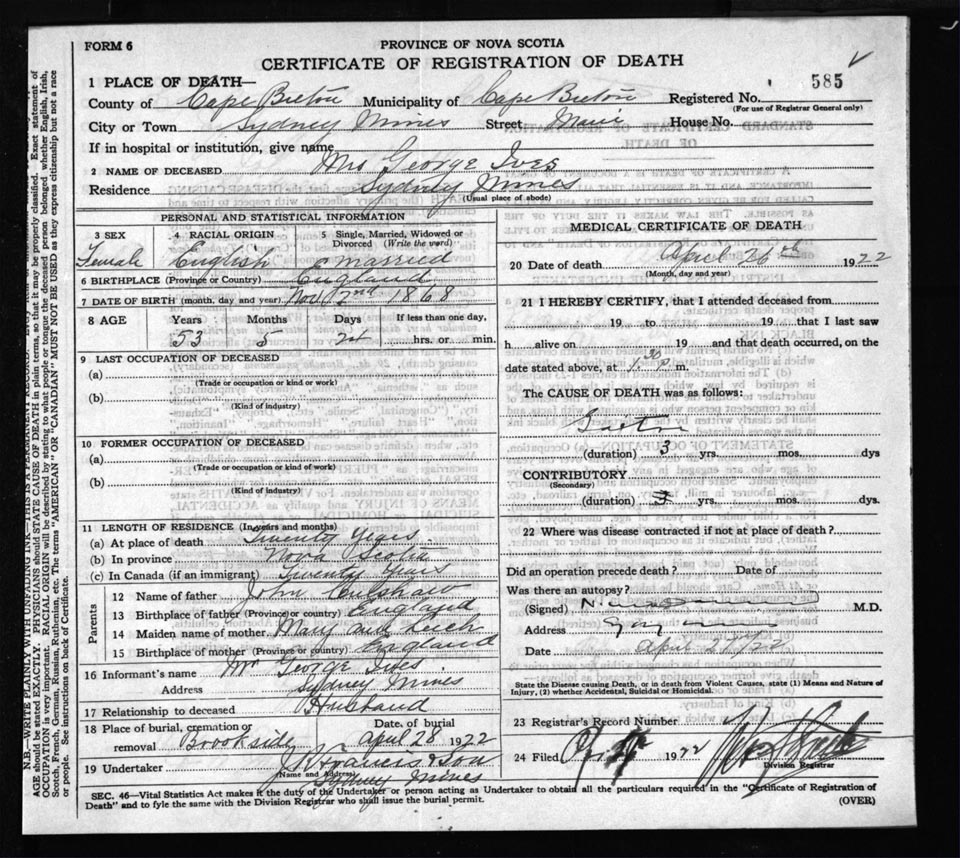 FORM 6
PROVINCE OF NOVA SCOTIA
CERTIFICATE OF REGISTRATION OF DEATH
585
1 PLACE OF DEATH—
County of Cape Breton Municipality of Cape Breton Registered No.
(For use of Registrar General only)
City or Town Sydney Mines Street Main House No.
If in hospital or institution, give name
2 NAME OF DECEASED Mrs George Ives
Residence Sydney Mines
(Usual place of abode)
PERSONAL AND STATISTICAL INFORMATION
3 SEX 4 RACIAL ORIGIN 5 Single, Married, Widowed or Divorced (Write the word)
Female English Married
6 BIRTHPLACE (Province or Country) England
7 DATE OF BIRTH (month, day and year) Nov 2nd 1868
8 AGE Years Months Days If less than one day,
53 5 24 hrs. or min.
9 LAST OCCUPATION OF DECEASED
(a)
(Trade or occupation or kind or work)
(b)
(Kind of industry)
10 FORMER OCCUPATION OF DECEASED
(a)
(Trade or occupation or kind or work)
(b)
(Kind of industry)
11 LENGTH OF RESIDENCE (In years and months)
(a) At place of death Twenty Years
(b) In province Nova Scotia
(c) In Canada (if an immigrant) Twenty Years
Parents
12 Name of father John Culshaw
13 Birthplace of father (Province or country) England
14 Maiden name of mother Mary Ann Leich
15 Birthplace of mother (Province or country) England
16 Informant's name Mr George Ives
Address Sydney Mines
17 Relationship to deceased Husband
18 Place of burial, cremation or removal Brookside Date of burial April 28 1922
19 Undertaker Francis & Son
(Name and Address)
Sydney Mines
MEDICAL CERTIFICATE OF DEATH
20 Date of death April 26th 1922
(Month, day and year)
21 I HEREBY CERTIFY, that I attended deceased from
19 to 19 that I last saw
h alive on 19 and that death occurred, on the
date stated above, at 1.30 P m.
The CAUSE OF DEATH was as follows:
(duration) 3 yrs. mos. dys
CONTRIBUTORY
(Secondary)
(duration) 3 yrs. mos. dys.
22 Where was disease contracted if not at place of death?
Did an operation precede death? Date of
Was there an autopsy?
(Signed) M.D.
Address
Date April 27/22
State the Disease causing Death, or in death from Violent Causes, state (1) Means and Nature of
Injury, (2) whether Accidental, Suicidal or Homicidal.
23 Registrar's Record Number
24 Filed 1922
Division Registrar
SEC. 46—Vital Statistics Act makes it the duty of the Undertaker or person acting as Undertaker to obtain all the particulars required in the "Certificate of Registration of
Death" and to fyle the same with the Division Registrar who shall issue the burial permit.
(OVER)
N.B.—WRITE PLAINLY WITH UNFADING INK—THIS IS A PERMANENT RECORD.
AGE should be stated EXACTLY. PHYSICIANS should STATE CAUSE OF DEATH in plain terms, so that it may be properly classified. Exact statement of
OCCUPATION is very important. RACIAL ORIGIN will be described by stating to what people or tongue the deceased person belonged whether English, Irish,
Scotch, French, German, Russian, Ruthenian, etc. The terms "AMERICAN" OR "CANADIAN" MUST NOT BE USED as they express citizenship but not a race
or people. See instructions on back of Certificate.